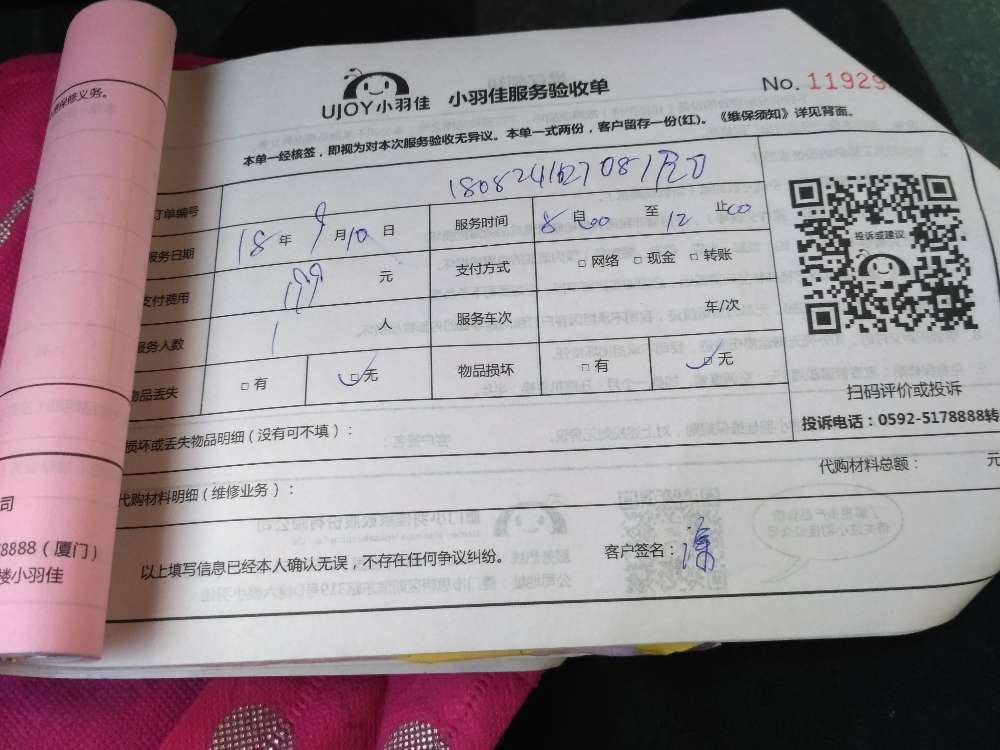 保修义务。
UJOY小羽佳 小羽佳服务验收单 No. 11929
本单一经核签,即视为对本次服务验收无异议。本单一式两份,客户留存一份(红)。《维保须知》详见背面。
订单编号
服务日期 18 年 9 月 10 日 服务时间 8 自 00 至 12 止 00
支付费用 199 元 支付方式 □ 网络 □ 现金 □ 转账
服务人数 1 人 服务车次 车/次
物品丢失 □ 有 □ 无 物品损坏 □ 有 □ 无
投诉或建议
扫码评价或投诉
投诉电话:0592-5178888转
损坏或丢失物品明细(没有可不填):
代购材料明细(维修业务): 代购材料总额: 元
以上填写信息已经本人确认无误,不存在任何争议纠纷。 客户签名:
司
8888(厦门)
楼小羽佳